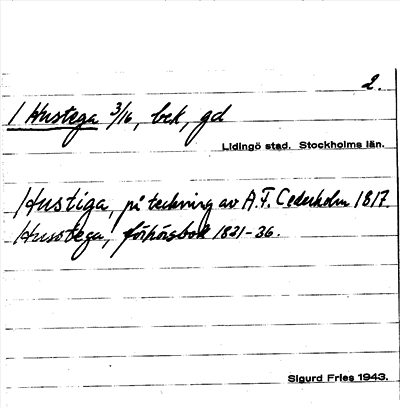 2.
1 Hustega 3/16, bek, gd
Lidingö stad. Stockholms län.
Hustiga, på teckning av A.F. Cederholm 1817
Husstega, förhörsbok 1831-36.
Sigurd Fries 1943.